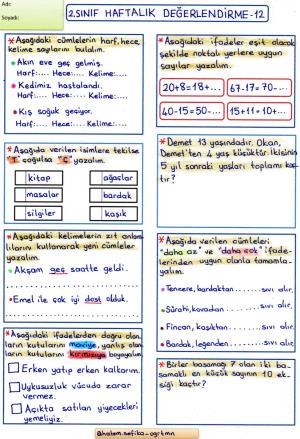 Adı:
Soyadı:
2.SINIF HAFTALIK DEĞERLENDİRME-12
*Aşağıdaki cümlelerin harf, hece,
kelime sayılarını bulalım.
Akın eve geç gelmiş.
Harf:.... Hece:.... Kelime:....
Kedimiz hastalandı.
Harf:.... Hece:.... Kelime:....
Kış soğuk geçiyor.
Harf:.... Hece:.... Kelime:....
*Aşağıda verilen isimlere tekilse
"T" çoğulsa "Ç" yazalım.
kitap
ağaçlar
masalar
bardak
silgiler
kaşık
*Aşağıdaki kelimelerin zıt anlam
lılarını kullanarak yeni cümleler
yazalım.
Akşam geç saatte geldi.
Emel ile çok iyi dost olduk.
*Aşağıdaki ifadelerden doğru olan
ların kutularını maviye, yanlış olan
ların kutularını kırmızıya boyayalım.
Erken yatıp erken kalkarım.
Uykusuzluk vücuda zarar
vermez.
Açıkta satılan yiyecekleri
yemeliyiz.
*Aşağıdaki ifadeler eşit olacak
şekilde noktalı yerlere uygun
sayılar yazalım.
20+8=18+...
67-17=70-...
40-15=50-...
15+11=10+...
*Demet 13 yaşındadır. Okan,
Demet'ten 4 yaş küçüktür. İkisinin
5 yıl sonraki yaşları toplamı kaç
tır?
*Aşağıda verilen cümleleri
"daha az" ve "daha çok" ifade-
lerinden uygun olanla tamamla-
yalım.
Tencere, bardaktan.........sıvı alır.
Sürahi, kovadan.........sıvı alır.
Fincan, kaşıktan.........sıvı alır.
Bardak, leğenden.........sıvı alır.
*Birler basamağı 7 olan iki ba-
samaklı en küçük sayının 10 ek-
siği kaçtır?
@hatem.sefika_ogrtmn